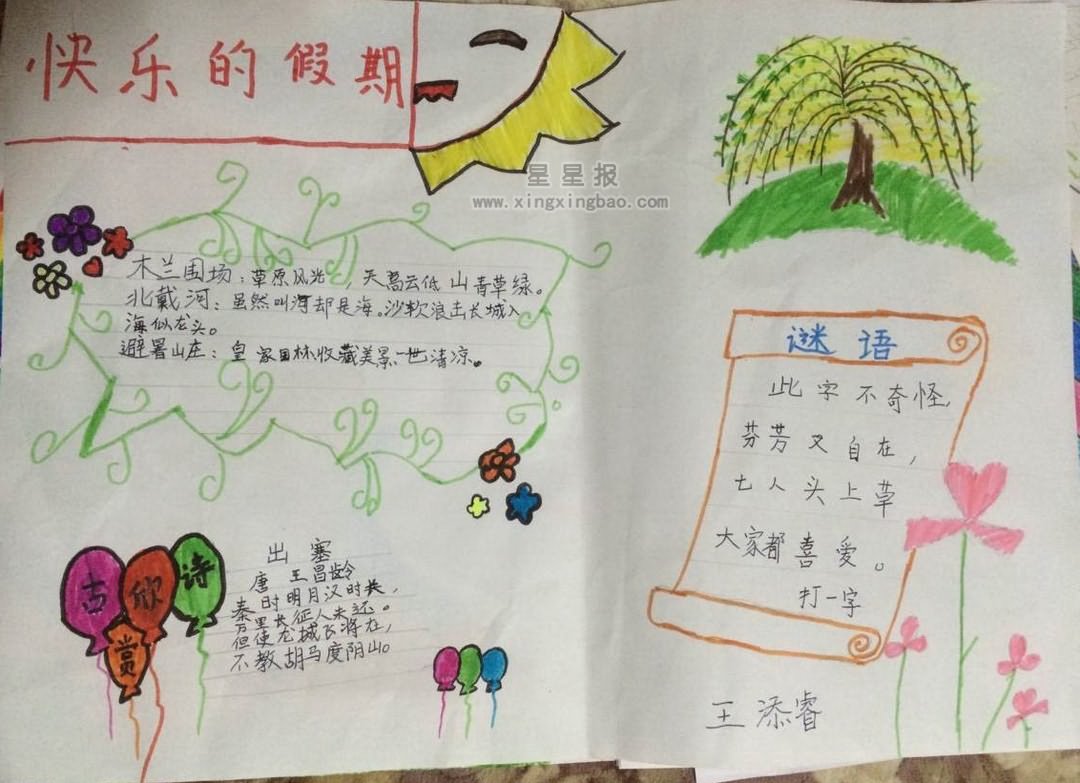 快乐的假期
星星报
www.xingxingbao.com
木兰围场：草原风光，天高云低山青草绿。
北戴河：虽然叫河却是海。沙软浪击长城入
海似龙头。
避暑山庄：皇家园林收藏美景一世清凉。
古欣诗
赏
出塞
唐 王昌龄
秦时明月汉时长，
万里长征人未还。
但使龙城飞将在，
不教胡马度阴山。
谜语
此字不奇怪，
芬芳又自在，
七人头上草
大家都喜爱。
打一字
王添睿